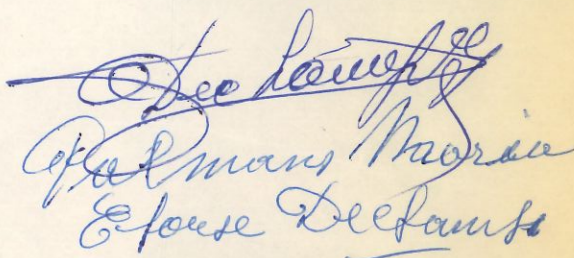 Dechamps
Palmans Maria
Epouse Dechamps